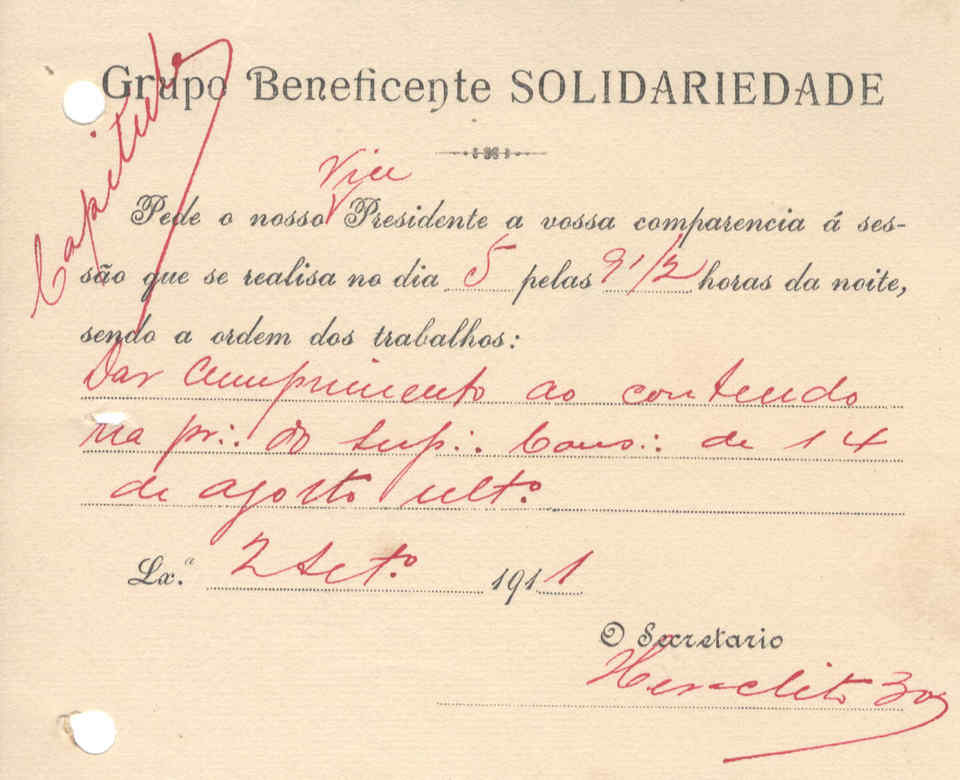 Grupo Beneficente SOLIDARIEDADE
Capitulo
Vice
Pede o nosso Presidente a vossa comparencia á ses-
são que se realisa no dia 5 pelas 9 1/2 horas da noite,
sendo a ordem dos trabalhos:
Dar cumprimento ao contendo
na pr∴ do Sup∴ Cons∴ de 14
de agosto ult.º
Lx.ª 2 Set.º 1911
O Secretario
Heraclito 3º